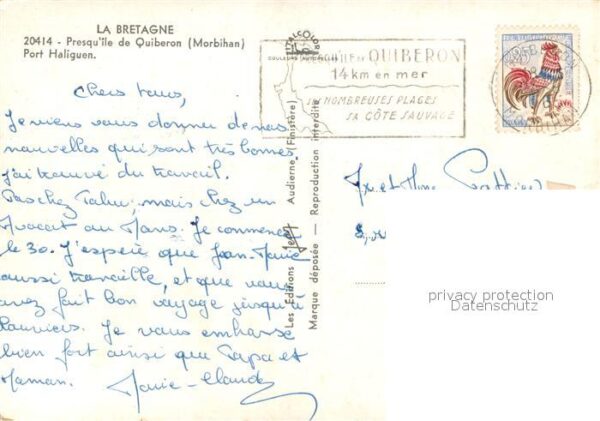 LA BRETAGNE
20414 - Presqu'île de Quiberon (Morbihan)
Port Haliguen.
Chers tous,
Je viens vous donner de mes
nouvelles qui sont très bonnes.
J'ai trouvé du travail.
Pas chez mais chez un
Avocat au Mans. Je commence
le 30. J'espère que Jean-Marie
aussi travaille, et que vous
avez fait bon voyage jusqu'à
Je vous embrasse
bien fort ainsi que Papa et
Maman. Marie-Claude
Les Editions Audierne (Finistère)
Marque déposée — Reproduction interdite
QUIBERON
14 km en mer
SES NOMBREUSES PLAGES
SA CÔTE SAUVAGE
0,25
Mr et Mme
privacy protection
Datenschutz